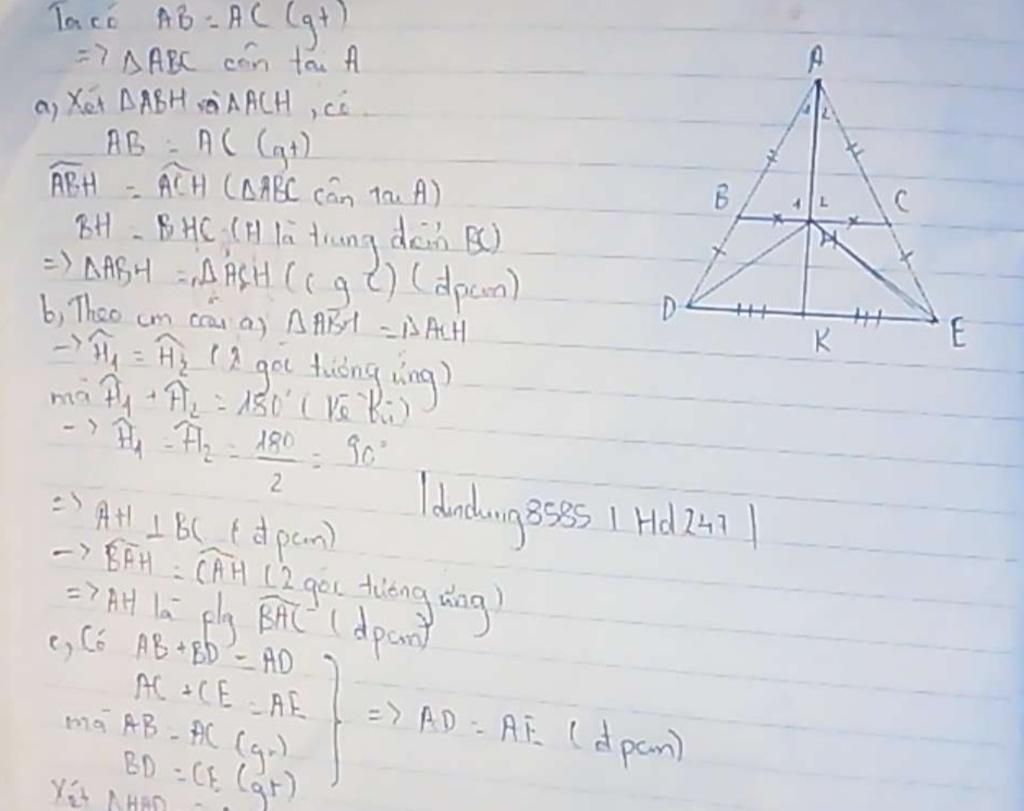 Ta có AB = AC (gt)
=> ΔABC cân tại A
a, Xét ΔABH và ΔACH, có
AB = AC (gt)
ABH = ACH (ΔABC cân tại A)
BH = BHC (H là trung điểm BC)
=> ΔABH = ΔACH (c g c) (đpcm)
b, Theo cm câu a) ΔABH = ΔACH
-> Ĥ1 = Ĥ2 (2 góc tương ứng)
mà Ĥ1 + Ĥ2 = 180° (kề bù)
-> Ĥ1 = Ĥ2 = 180/2 = 90°
=> AH ⊥ BC (đpcm)
|dindung8585 | Hd247|
-> BAH = CAH (2 góc tương ứng)
=> AH là p/g BAC (đpcm)
c, Có AB + BD = AD
AC + CE = AE
mà AB = AC (gt)
BD = CE (gt)
=> AD = AE (đpcm)
Xét ΔHAD
A
1 2
B
1 2
C
H
D
K
E